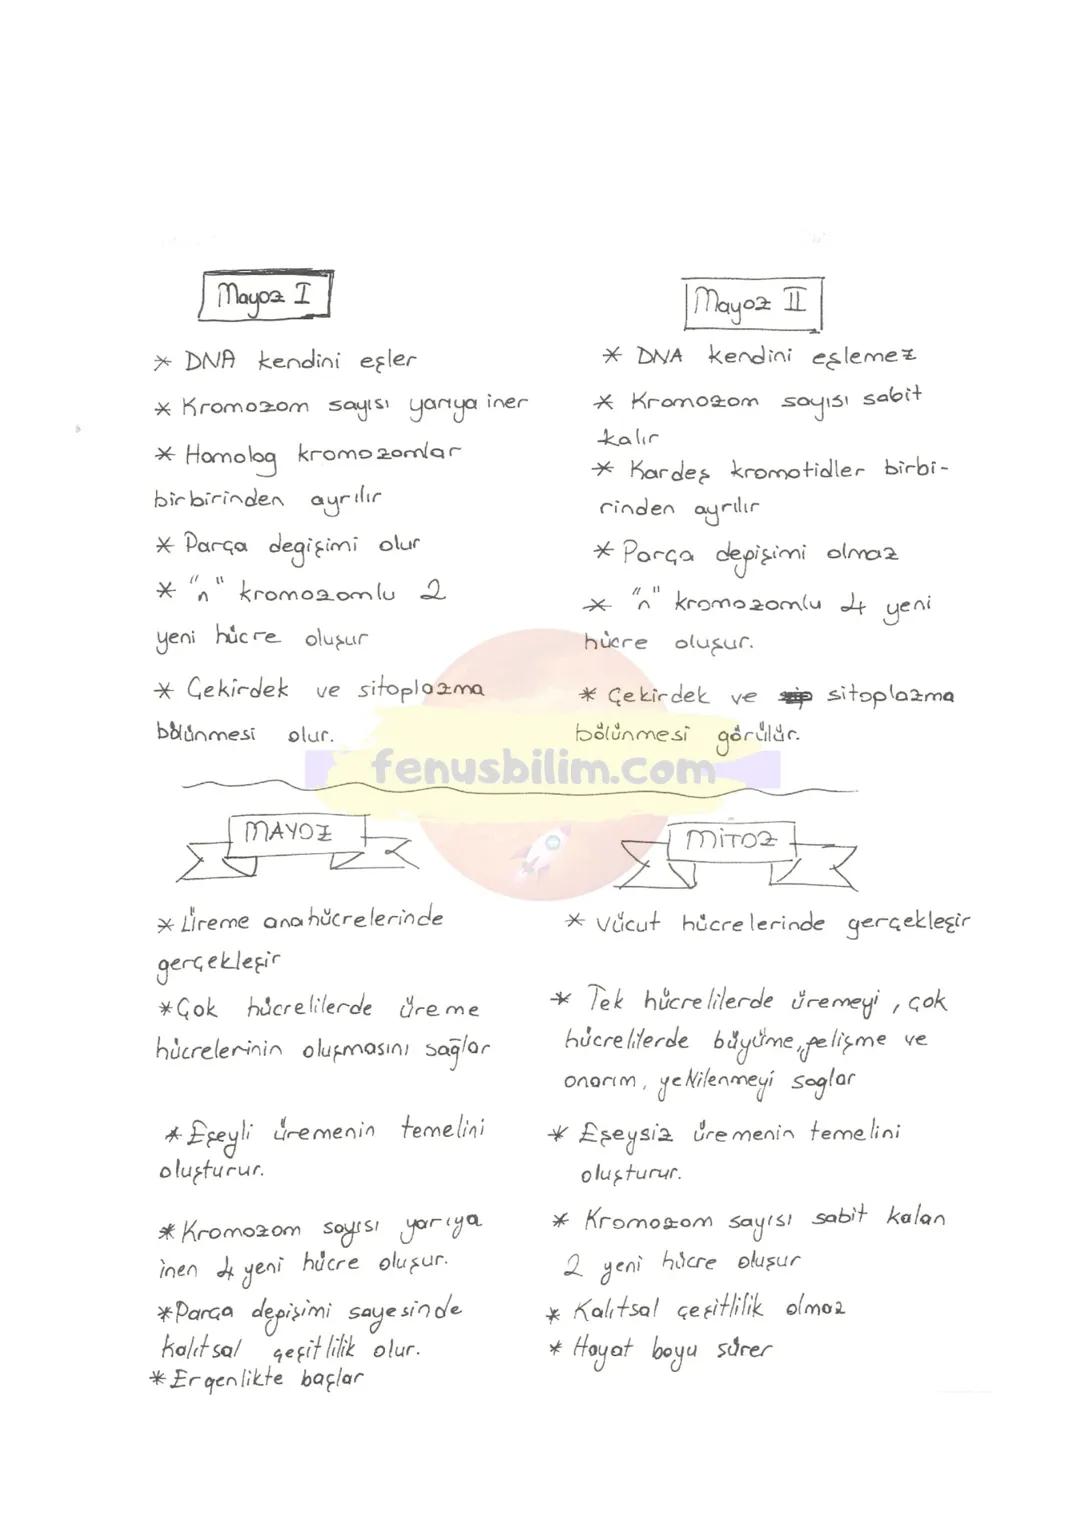 Mayoz I
* DNA kendini eşler
* Kromozom sayısı yarıya iner
* Homolog kromozomlar
birbirinden ayrılır
* Parça degişimi olur
* "n" kromozomlu 2
yeni hücre oluşur
* Çekirdek ve sitoplazma
bölünmesi olur.
Mayoz II
* DNA kendini eşlemez
* Kromozom sayısı sabit
kalır
* Kardeş kromotidler birbi-
rinden ayrılır
* Parça depişimi olmaz
* "n" kromozomlu 4 yeni
hücre oluşur.
* Çekirdek ve sitoplazma
bölünmesi görülür.
fenusbilim.com
MAYOZ
* Üreme ana hücrelerinde
gerçekleşir
* Çok hücrelilerde üreme
hücrelerinin oluşmasını sağlar
* Eşeyli üremenin temelini
oluşturur.
* Kromozom sayısı yarıya
inen 4 yeni hücre oluşur.
* Parça depişimi sayesinde
kalıtsal çeşitlilik olur.
* Ergenlikte başlar
MİTOZ
* Vücut hücrelerinde gerçekleşir
* Tek hücrelilerde üremeyi, çok
hücrelilerde büyüme, pelişme ve
onarım, yeNilenmeyi saglar
* Eşeysiz üremenin temelini
oluşturur.
* Kromozom sayısı sabit kalan
2 yeni hücre oluşur
* Kalıtsal çeşitlilik olmaz
* Hayat boyu sürer